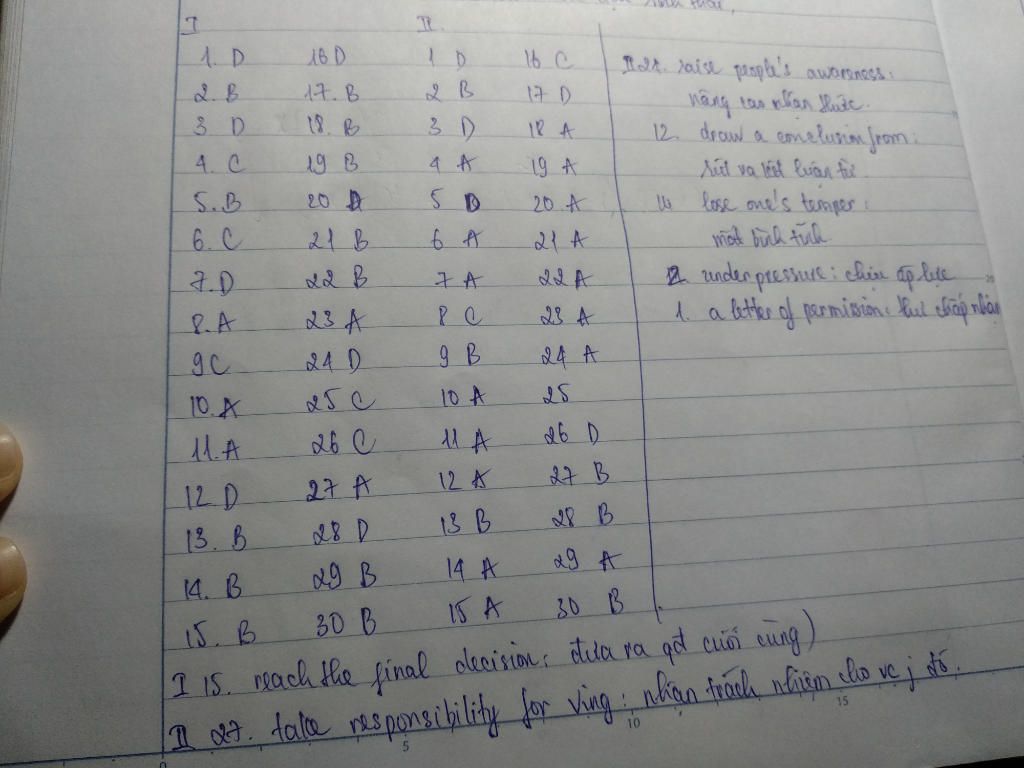 I II.
1. D 16 D 1 D 16 C
2. B 17. B 2 B 17 D
3 D 18. B 3 D 18 A
4. C 19 B 4 A 19 A
5. B 20 5 D 20. A
6. C 21 B 6 A 21 A
7. D 22 B 7 A 22 A
8. A 23 A 8 C 23 A
9 C 24 D 9 B 24 A
10. A 25 C 10 A 25
11. A 26 C 11 A 26 D
12 D 27 A 12 A 27 B
13. B 28 D 13 B 28 B
14. B 29 B 14 A 29 A
15. B 30 B 15 A 30 B
II raise people's awareness:
nâng cao nhận thức.
12. draw a conclusion from:
rút ra kết luận từ.
lose one's temper:
mất bình tĩnh
under pressure: chịu áp lực
1. a letter of permission: thư chấp nhận
I 15. reach the final decision: đưa ra qđ cuối cùng)
II 27. take responsibility for Ving: nhận trách nhiệm cho vc j đó.
5 10 15